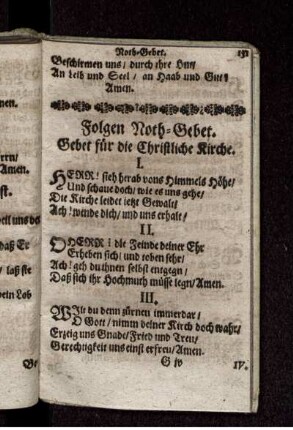 Noth-Gebet. 151
Beschirmen uns / durch ihre Hut /
An Leib und Seel / an Haab und Gut /
Amen.
Folgen Noth-Gebet.
Gebet für die Christliche Kirche.
I.
HERR! sieh herab vons Himmels Höhe /
Und schaue doch / wie es uns gehe /
Die Kirche leidet jetzt Gewalt /
Ach! wende dich / und uns erhalt /
II.
O HERR! die Feinde deiner Ehr
Erheben sich / und toben sehr /
Ach! geh du ihnen selbst entgegn /
Daß sich ihr Hochmuth müsse legn / Amen.
III.
Wilt du denn zürnen immerdar /
O Gott / nimm deiner Kirch doch wahr /
Erzeig uns Gnade / Fried und Treu /
Gerechtigkeit uns einst erfreu / Amen.
G iv
IV.
nen.
Amen.
st.
daß Er
/ laß sie
dein Lob